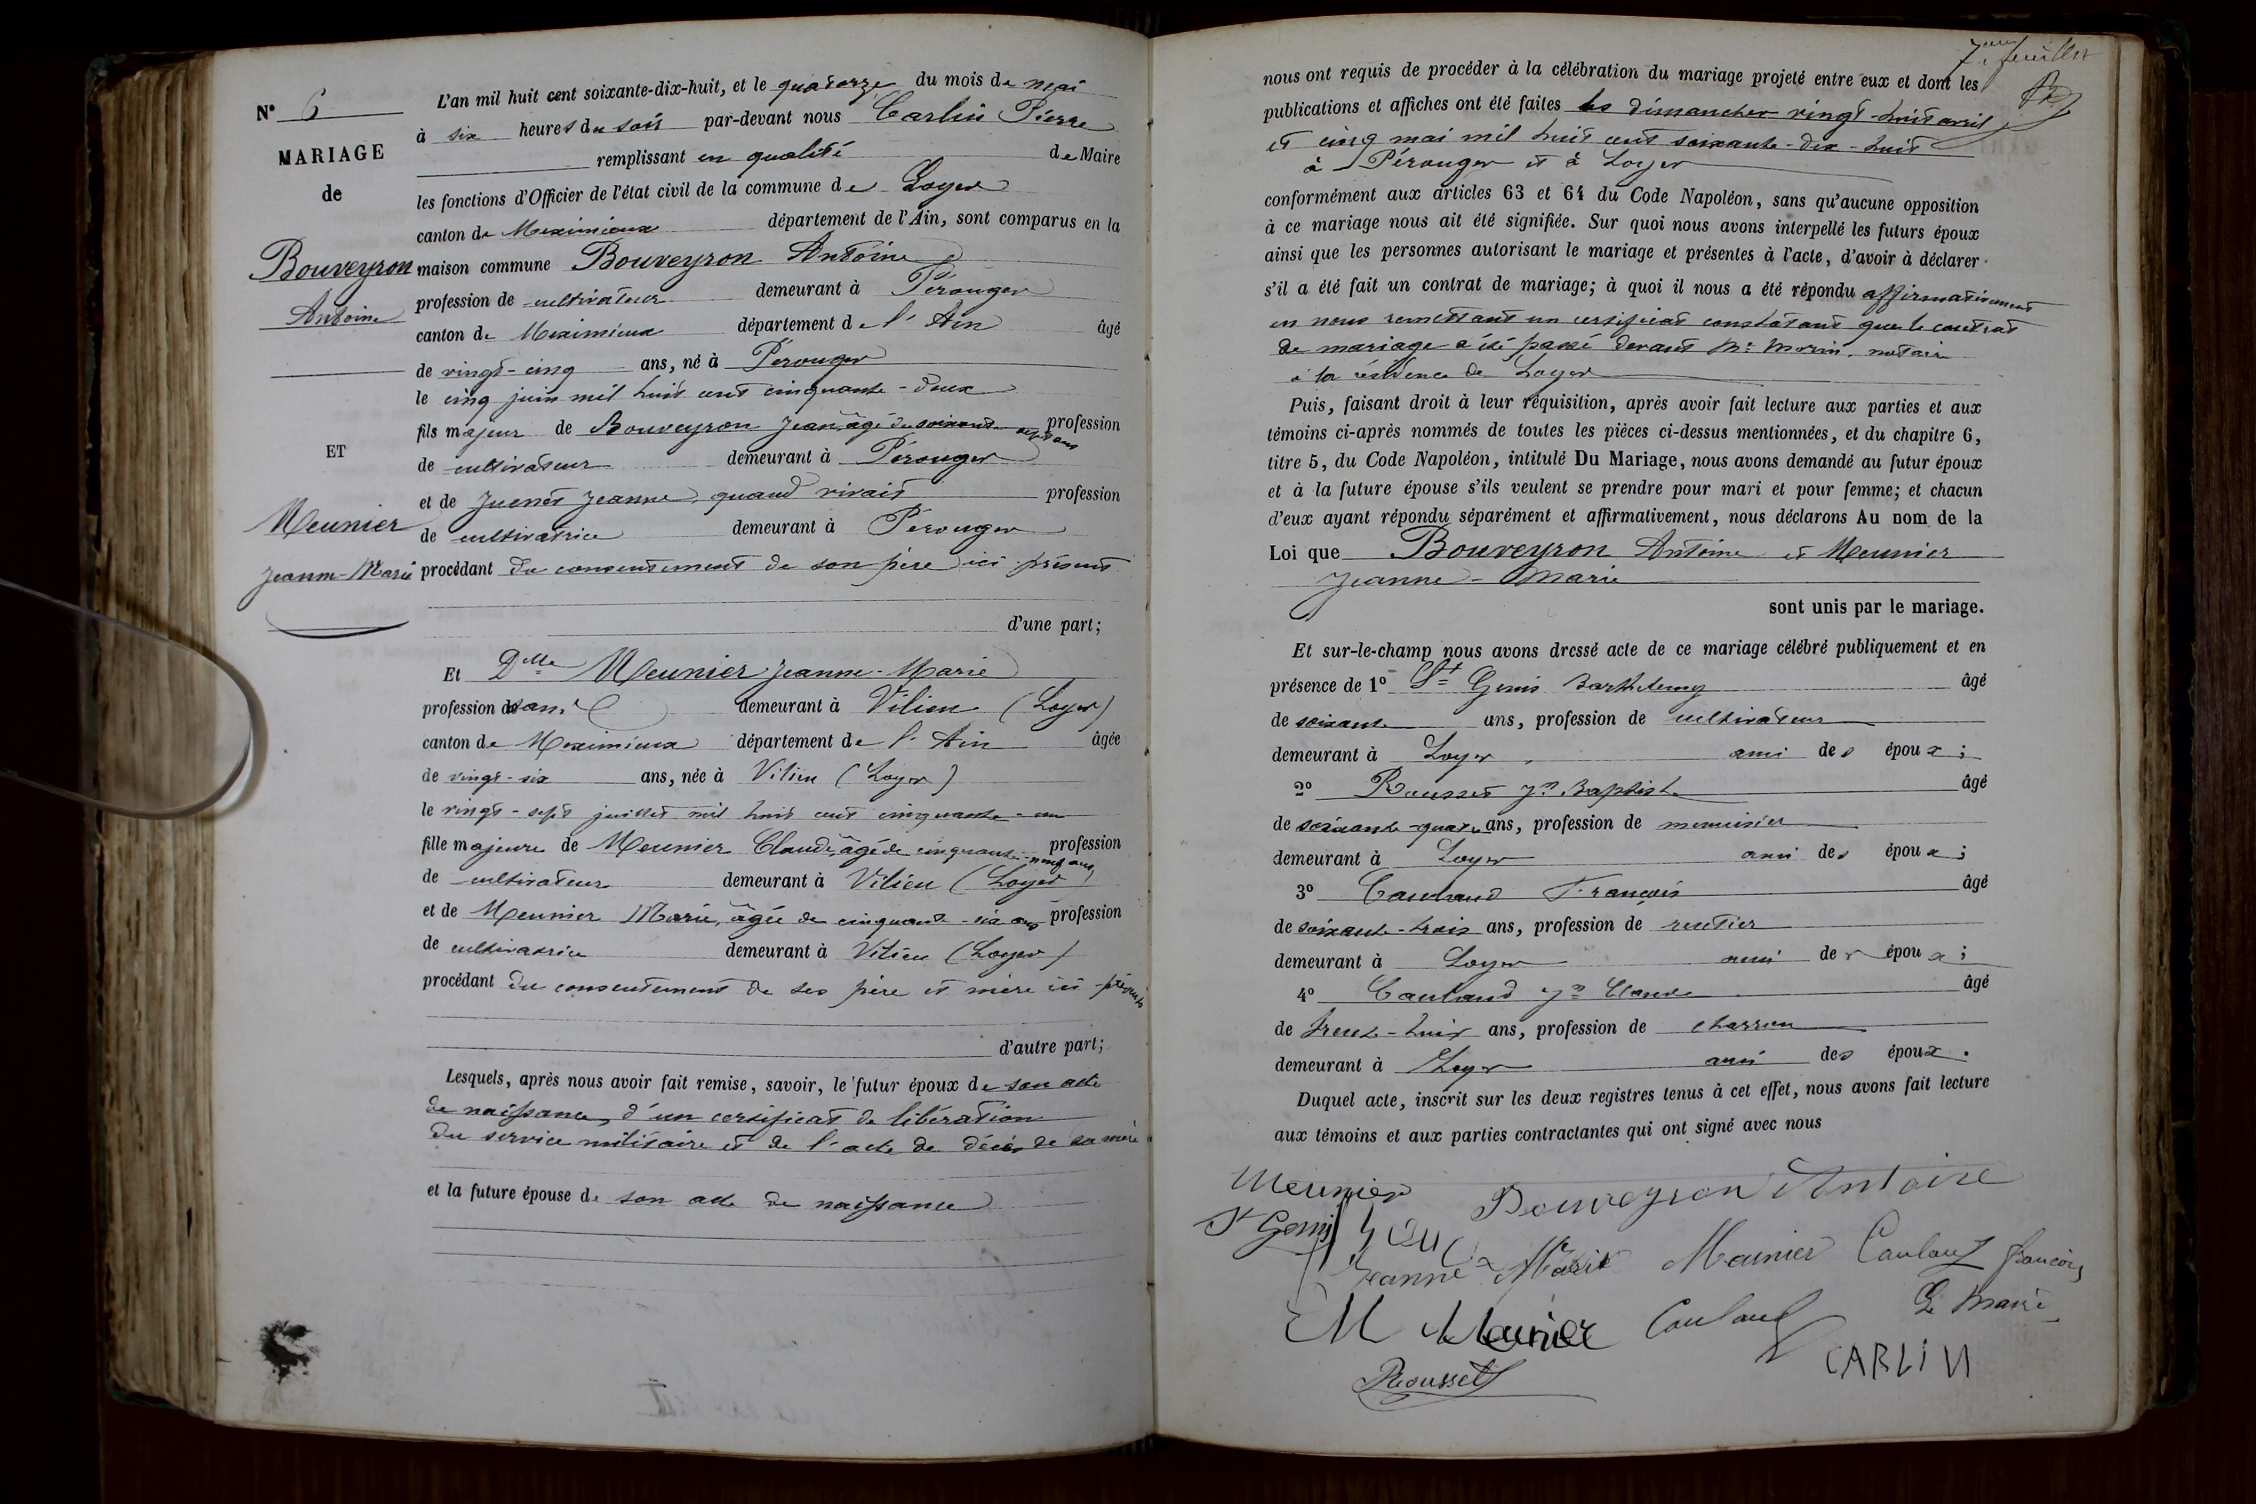 N° 6
MARIAGE
de
Bouveyron
Antoine
ET
Meunier
Jeanne-Marie
L'an mil huit cent soixante-dix-huit, et le quatorze du mois de mai
à six heures du soir par-devant nous Carlin Pierre
remplissant en qualité de Maire
les fonctions d'Officier de l'état civil de la commune de Loyes
canton de Meximieux département de l'Ain, sont comparus en la
maison commune Bouveyron Antoine
profession de cultivateur demeurant à Pérouges
canton de Meximieux département de l'Ain âgé
de vingt-cinq ans, né à Pérouges
le cinq juin mil huit cent cinquante-deux
fils majeur de Bouveyron Jean, âgé de soixante sept ans profession
de cultivateur demeurant à Pérouges
et de Juenet Jeanne, quand vivait profession
de cultivatrice demeurant à Pérouges
procédant du consentement de son père ici présent
d'une part;
Et Dlle Meunier Jeanne-Marie
profession de sans demeurant à Vilieu (Loyes)
canton de Meximieux département de l'Ain âgée
de vingt-six ans, née à Vilieu (Loyes)
le vingt-sept juillet mil huit cent cinquante-un
fille majeure de Meunier Claude, âgé de cinquante-neuf ans, profession
de cultivateur demeurant à Vilieu (Loyes)
et de Meunier Marie, âgée de cinquante-six ans profession
de cultivatrice demeurant à Vilieu (Loyes)
procédant du consentement de ses père et mère ici présents
d'autre part;
Lesquels, après nous avoir fait remise, savoir, le futur époux de son acte
de naissance, d'un certificat de libération
du service militaire et de l'acte de décès de sa mère
et la future épouse de son acte de naissance
7ème feuillet
nous ont requis de procéder à la célébration du mariage projeté entre eux et dont les
publications et affiches ont été faites les dimanches vingt-huit avril
et cinq mai mil huit cent soixante-dix-huit
à Pérouges et à Loyes
conformément aux articles 63 et 64 du Code Napoléon, sans qu'aucune opposition
à ce mariage nous ait été signifiée. Sur quoi nous avons interpellé les futurs époux
ainsi que les personnes autorisant le mariage et présentes à l'acte, d'avoir à déclarer
s'il a été fait un contrat de mariage; à quoi il nous a été répondu affirmativement
en nous remettant un certificat constatant que le contrat
de mariage a été passé devant Me Morin, notaire
à la résidence de Loyes
Puis, faisant droit à leur réquisition, après avoir fait lecture aux parties et aux
témoins ci-après nommés de toutes les pièces ci-dessus mentionnées, et du chapitre 6,
titre 5, du Code Napoléon, intitulé Du Mariage, nous avons demandé au futur époux
et à la future épouse s'ils veulent se prendre pour mari et pour femme; et chacun
d'eux ayant répondu séparément et affirmativement, nous déclarons Au nom de la
Loi que Bouveyron Antoine et Meunier
Jeanne-Marie
sont unis par le mariage.
Et sur-le-champ nous avons dressé acte de ce mariage célébré publiquement et en
présence de 1° St Genis Barthélemy âgé
de soixante ans, profession de cultivateur
demeurant à Loyes ami des époux;
2° Rousset Jn Baptiste âgé
de soixante-quatre ans, profession de menuisier
demeurant à Loyes ami des époux;
3° Cauland François âgé
de soixante-trois ans, profession de rentier
demeurant à Loyes ami des époux;
4° Cauland Jn Claude âgé
de trente-huit ans, profession de charron
demeurant à Loyes ami des époux.
Duquel acte, inscrit sur les deux registres tenus à cet effet, nous avons fait lecture
aux témoins et aux parties contractantes qui ont signé avec nous
Meunier
Bouveyron Antoine
St Genis
Jeanne Marie Meunier Cauland françois
M Meunier Cauland Le Maire
CARLIN
Rousset